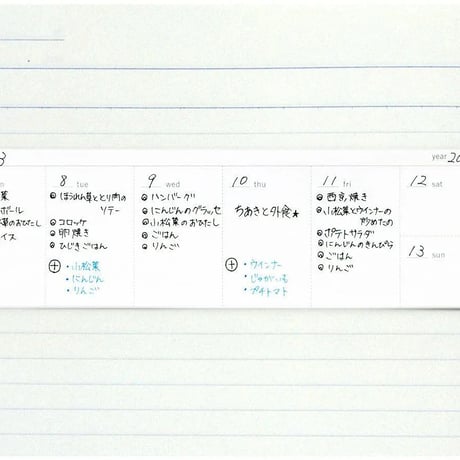 3
year 20
菜
ボール
草のおひたし
イス
8 tue
ほうれん草ととり肉の
ソテー
コロッケ
卵焼き
ひじきごはん
+
・小松菜
・にんじん
・りんご
9 wed
ハンバーグ
にんじんのグラッセ
小松菜のおひたし
ごはん
りんご
10 thu
ちあきと外食★
+
・ウインナー
・じゃがいも
・プチトマト
11 fri
西京焼き
小松菜とウインナーの
炒めたの
ポテトサラダ
にんじんのきんぴら
ごはん
りんご
12 sat
13 sun